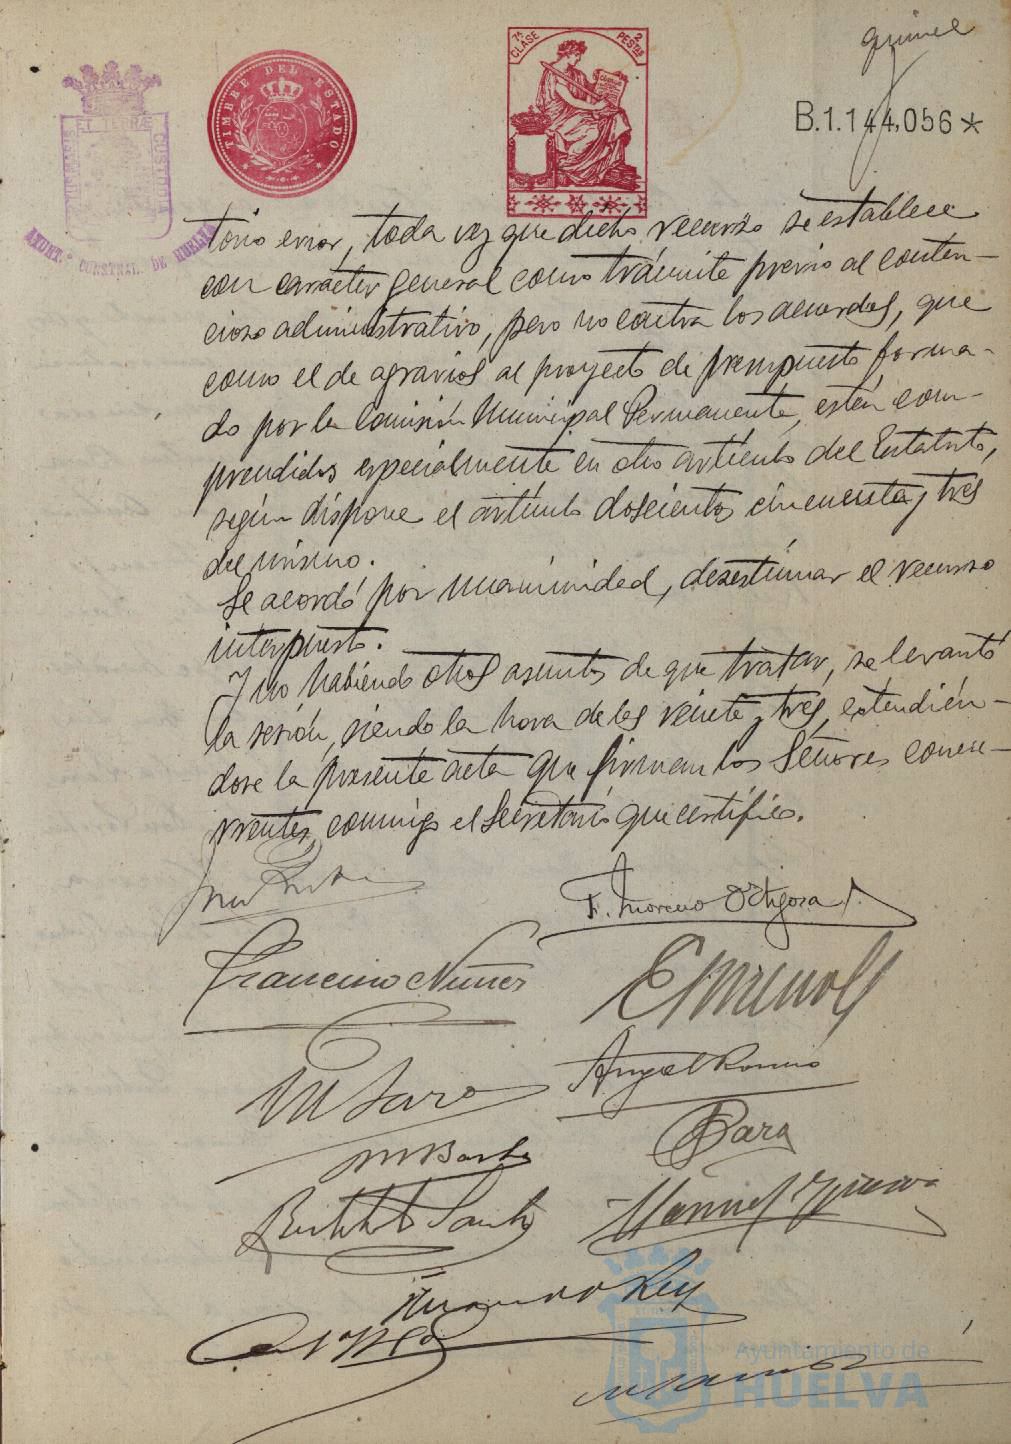 quince
TIMBRE DEL ESTADO
7ª CLASE
2 PESETAS
B.1.144,056*
AYUNT.º CONSTNAL. DE HUELVA
torio error, toda vez que dicho recurso se establece
con carácter general como trámite previo al conten-
cioso administrativo, pero no contra los acuerdos, que
como el de agravios al proyecto de presupuesto forma-
do por la Comisión Municipal Permanente, están com-
prendidos especialmente en otro artículo del Estatuto,
según dispone el artículo doscientos cincuenta y tres
del mismo.
Se acordó por unanimidad, desestimar el recurso
interpuesto.
Y no habiendo otros asuntos de que tratar, se levantó
la sesión, siendo la hora de las veinte y tres, extendién-
dose la presente acta que firman los Señores concu-
rrentes, conmigo el Secretario que certifico.
F. Moreno Ortigosa
Francisco Núñez
M Saro
Angel Romero
Manuel
Rey
Ayuntamiento de
HUELVA